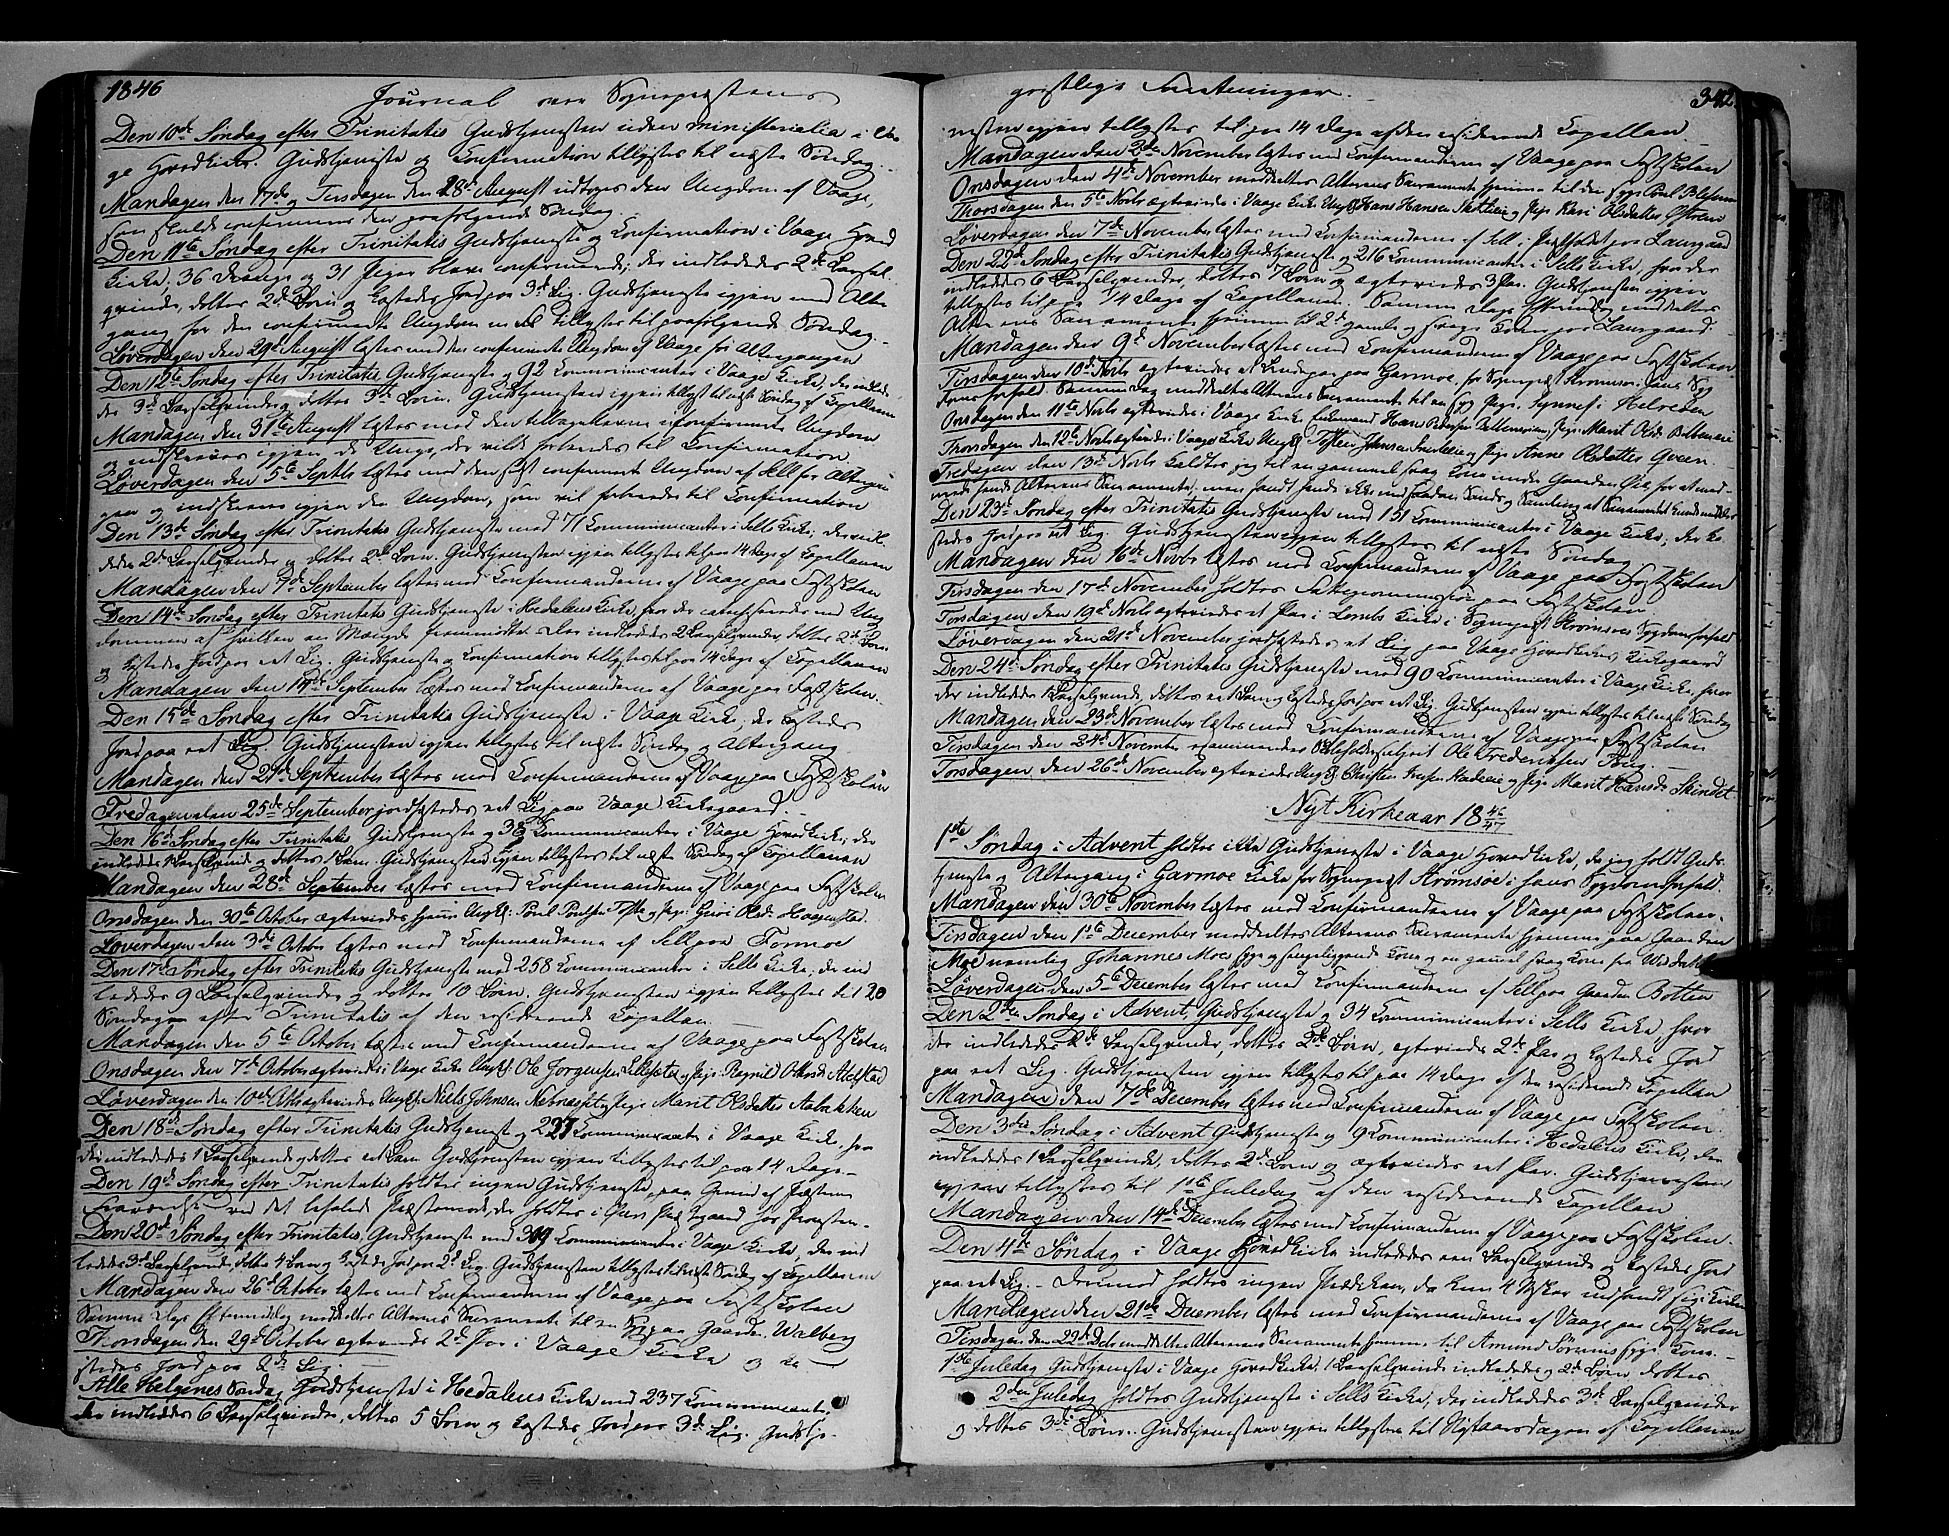 1846
Journal over Sognepræstens
Den 10de Søndag efter Trinitatis Gudstjenesten uden ministerialia i Vaa-
ge Hovedkirke. Gudstjeneste og Confirmation tillystes til næste Søndag.
Mandagen den 17de og Tirsdagen den 28de August udtoges den Ungdom af Vaage,
som skulde confirmeres den paafølgende Søndag.
Den 11te Søndag efter Trinitatis Gudstjeneste og Confirmation i Vaage Hoved
Kirke, 36 Drenge og 31 Piger bleve confirmerede; der indlededes 2de Barsel
qvinder, døbtes 2de Børn og kastedes Jord paa 3de Lig. Gudstjeneste igjen med Alter
gang for den confirmerede Ungdom tillystes til paafølgende Søndag.
Løverdagen den 29de August læstes med den confirmerte Ungdom af Vaage før Altergangen
Den 12te Søndag efter Trinitatis Gudstjeneste og 92 Communicanter i Vaage Kirke, der indlede-
des 3de Barselqvinder døbtes 3de Børn. Gudstjenesten igjen tillyst til næste Søndag af Capellanen
Mandagen den 31te August læstes med den tilbageværende uconfirmerte Ungdom
og indskreves igjen de Unge, der vilde forberedes til Confirmation.
Løverdagen den 5te Septbr læstes med den sidst confirmerte Ungdom af Sell før Altergan
gen og indskreves igjen den Ungdom, som vil forberedes til Confirmation
Den 13de Søndag efter Trinitatis Gudstjeneste med 71 Communicanter i Sells Kirke, der indle-
dedes 2de Barselqvinder og døbtes 2de Børn. Gudstjenesten igjen tillystes til paa 14 Dage af Capellanen
Mandagen den 7de September læstes med Confirmanderne af Vaage paa Fastskolen
Den 14de Søndag efter Trinitatis Gudstjeneste i Hedalens Kirke, hvor der catechiseredes med Ung
dommen af hvilken en Mængde fremmødte. Der indlededes 2 Barselqvinder, døbtes 2de Børn
og kastedes Jord paa et Lig. Gudstjeneste og Confirmation tillystes til paa 14 Dage af Capellanen
Mandagen den 14de September læstes med Confirmanderne af Vaage paa Fastskolen.
Den 15de Søndag efter Trinitatis Gudstjeneste i Vaage Kirke, der kastedes
Jord paa et Lig. Gudstjenesten igjen tillystes til næste Søndag og Altergang
Mandagen den 21de September læstes med Confirmanderne af Vaage paa Fastskolen
Fredagen den 25de September jordfæstedes et Lig paa Vaage Kirkegaard
Den 16de Søndag efter Trinitatis Gudstjeneste og 38 Communicanter i Vaage Hovedkirke, der
indlededes 1 Barselqvinde og døbtes 1 Barn. Gudstjenesten igjen tillystes til næste Søndag af Capellanen
Mandagen den 28de September læstes med Confirmanderne af Vaage paa Fastskolen
Onsdagen den 30te October ægteviedes hjemme Ungk: Poul Poulsen Tofte og Pige Guri Olsd. Haagenstad.
Løverdagen den 3die October læstes med Confirmanderne af Sell paa Formoe
Den 17de Søndag efter Trinitatis Gudstjeneste med 258 Communicanter i Sells Kirke, der ind
lededes 9 Barselqvinder og døbtes 10 Børn. Gudstjenesten igjen tillystes til 20
Søndagen efter Trinitatis af den residerende Capellan.
Mandagen den 5te October læstes med Confirmanderne af Vaage paa Fastskolen
Onsdagen den 7de October ægteviedes i Vaage Kirke Ungk: Ole Jørgensen og Pige Ragnild
Løverdagen den 10de October ægteviedes Ungk: Niels Johnsen og Pige Marit Olsdatter
Den 18de Søndag efter Trinitatis Gudstjeneste og 227 Communicanter i Vaage Kirke, hvor
der indlededes 1 Barselqvinde og døbtes et Barn. Gudstjenesten igjen tillystes til paa 14 Dage.
Den 19de Søndag efter Trinitatis holdtes ingen Gudstjeneste, paa Grund af Præstens
Fraværelse ved det befalede Præstemøde, der holdtes i Præstegaard hos Provsten.
Den 20de Søndag efter Trinitatis, Gudstjeneste med 309 Communicanter i Vaage Kirke, der ind
lededes 3de Barselqvinder, døbtes 4 Børn og kastedes Jord paa 2de Lig. Gudstjenesten tillystes til næste Søndag af Capellanen
Mandagen den 26de October læstes med Confirmanderne af Vaage paa Fastskolen
Samme Dags Eftermiddag meddeltes Alterens Sacramente til en Syg paa Gaarden Walberg
Thorsdagen den 29de October ægteviedes 2de Par i Vaage Kirke og ka-
stedes Jord paa 2de Lig.
Alle Helgenes Søndag Gudstjeneste i Hedalens Kirke med 237 Communicanter,
der indlededes 6 Barselqvinder, døbtes 5 Børn og kastedes Jord paa 3de Lig. Gudstje-
geistlige Forretninger.
342.
nesten igjen tillystes til paa 14 Dage af den residerende Capellan.
Mandagen den 2de November læstes med Confirmanderne af Vaage paa Fastskolen
Onsdagen den 4de November meddeltes Alterens Sacramente hjemme til den syge Poul
Thorsdagen den 5te Novbr ægteviedes i Vaage Kirke Ungk: Hans Hansen og Pige Kari Olsdatter
Løverdagen den 7de November læstes med Confirmanderne af Sell i Præstefoldet paa Laurgaard
Den 22de Søndag efter Trinitatis Gudstjeneste og 216 Communicanter i Sells Kirke, hvor der
indlededes 6 Barselqvinder, døbtes 7 Børn og ægteviedes 3 Par. Gudstjenesten igjen
tillystes til paa 14 Dage af Capellanen. Samme Dags Eftermiddag meddeltes
Alterens Sacramente hjemme til 2de gamle og svage Koner paa Laurgaard
Mandagen den 9de November læstes med Confirmanderne af Vaage paa Fastskolen.
Tirsdagen den 10de Novbr ægteviedes et Brudepar paa Garmoe, for Sognepræst Strømsøe i hans Syg-
domsforfald. Samme Dag meddeltes Alterens Sacramente til en syg Pige, Synnøf i Helveten
Onsdagen den 11te Novbr ægteviedes i Vaage Kirke Enkemand Hans Pedersen og Pige Marit Olsd.
Thorsdagen den 12te Novbr ægteviedes i Vaage Kirke Ungk: og Pige Anne Olsdatter Qveen.
Fredagen den 13de Novbr kaldtes jeg til en gammel svag Kone under Gaarden for at med-
dele hende Alterens Sacramente, men fandt hende ikke
Den 23de Søndag efter Trinitatis Gudstjeneste med 131 Communicanter i Vaage Kirke, der ka-
stedes Jord paa et Lig. Gudstjenesten igjen tillystes til næste Søndag
Mandagen den 16de Novbr læstes med Confirmanderne af Vaage paa Fastskolen
Tirsdagen den 17de November holdtes Fattigcommission paa Fastskolen
Torsdagen den 19de Novbr ægteviedes et Par i Lomb Kirke i Sognepræst Strømsøes Sygdomsforfald
Løverdagen den 21de November jordfæstedes et Lig paa Vaage Hovedkirkes Kirkegaard
Den 24de Søndag efter Trinitatis Gudstjeneste med 90 Communicanter i Vaage Kirke, hvor
der indlededes 1 Barselqvinde døbtes et Barn og kastedes Jord paa et Lig. Gudstjenesten igjen tillystes til næste Søndag
Mandagen den 23de November læstes med Confirmanderne af Vaage paa Fastskolen
Tirsdagen den 24de November examineredes Ole Frederiksen
Torsdagen den 26de November ægteviedes Ungk: Christen og Pige Marit Hansd: Skindet
Nyt Kirkeaar 18 46/47
1ste Søndag i Advent holdtes ikke Gudstjeneste i Vaage Hovedkirke, da jeg holdt Guds-
tjeneste og Altergang i Garmoe Kirke for Sognepræst Strømsøe i hans Sygdomsforfald.
Mandagen den 30te November læstes med Confirmanderne af Vaage paa Fastskolen.
Tirsdagen den 1ste December meddeltes Alterens Sacramente hjemme paa Gaarden
Moe nemlig Johannes Moes syge og sengeliggende Kone og en gammel svag Kone fra
Løverdagen den 5te December læstes med Confirmanderne af Sell paa Gaarden Botten
Den 2den Søndag i Advent, Gudstjeneste og 34 Communicanter i Sells Kirke, hvor
der indlededes 2de Barselqvinder, døbtes 2de Børn, ægteviedes 2de Par og kastedes Jord
paa et Lig. Gudstjenesten igjen tillystes til paa 14 Dage af den residerende Capellan
Mandagen den 7de December læstes med Confirmanderne af Vaage paa Fastskolen.
Den 3die Søndag i Advent Gudstjeneste og 9 Communicanter i Hedalens Kirke, der
indlededes 1 Barselqvinde, døbtes 2de Børn og ægteviedes et Par. Gudstjenesten
igjen tillystes til 1ste Juledag af den residerende Capellan
Mandagen den 14de December læstes med Confirmanderne af Vaage paa Fastskolen.
Den 4de Søndag i Vaage Hovedkirke indlededes een Barselqvinde og kastedes Jord
paa et Lig. Derimod holdtes ingen Prædiken, da kun 4 Mskr indfandt sig i Kirken
Mandagen den 21de December læstes med Confirmanderne af Vaage paa Fastskolen
Tirsdagen den 22de Debr meddeltes Alterens Sacramente hjemme til Amund syge Kone.
1ste Juledag Gudstjeneste i Vaage Hovedkirke, 1 Barselqvinde indlededes og 2de Børn døbtes
2den Juledag holdtes Gudstjeneste i Sells Kirke, der indlededes 3de Barselqvinder
og døbtes 3de Børn. Gudstjenesten igjen tillystes til Nytaarsdagen af Capellanen